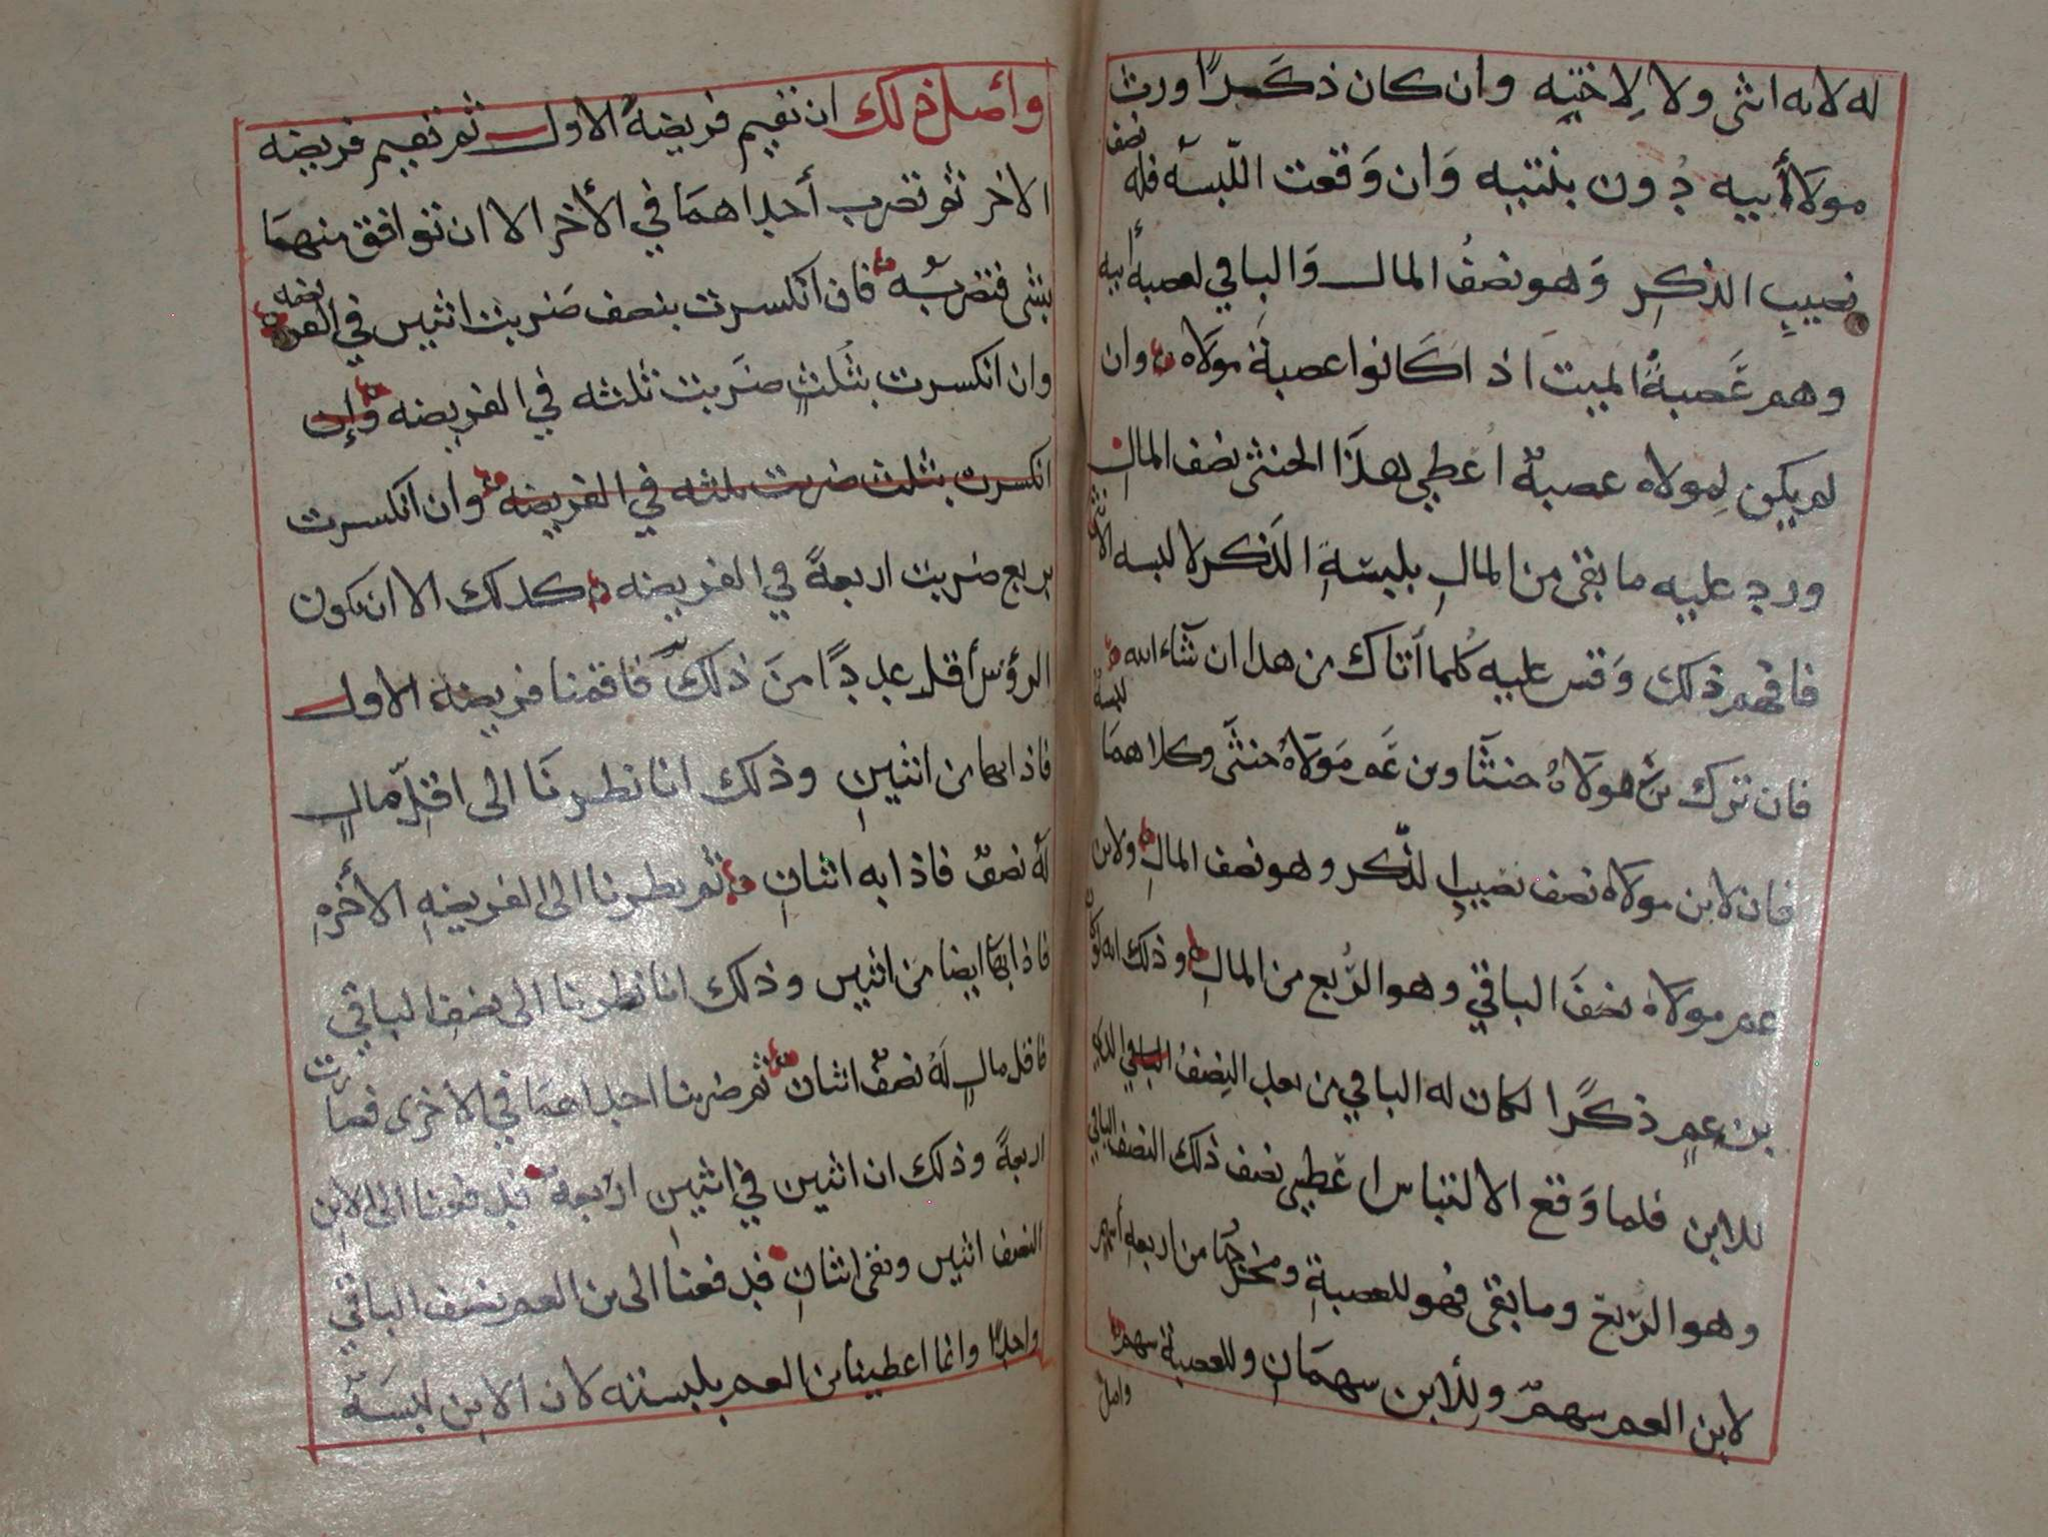 له لانه انثى ولا لاخته وان كان ذكرًا ورث
مولا أبيه دون بنتيه وان وقعت اللبسه فله نصف
نصيب الذكر وهو نصف المال والباقي لعصبة أبيه
وهم عصبة الميت اذا كانوا عصبة مولاه وان
لم يكن لمولاه عصبة اعطي هذا الخنثى نصف المال
ورد عليه ما بقى من المال بلبسة الذكر لا لبسه الأنثى
فافهم ذلك وقس عليه كلما أتاك من هذا ان شاء الله
فان ترك بن مولاه خنثا وبن عم مولاه خنثى وكلاهما لبسة
فان لابن مولاه نصف نصيب الذكر وهو نصف المال ولابن
عم مولاه نصف الباقي وهو الربع من المال وذلك انه لو كان
بن عم ذكرًا لكان له الباقي من بعد النصف الباقي الذي
للابن فلما وقع الالتباس اعطي نصف ذلك النصف الباقي
وهو الربع وما بقى فهو للعصبة ومخرجها من اربعه أسهم
لابن العم سهم وللأبن سهمان وللعصبة سهم
واصل
وأصل ذلك ان تقيم فريضة الاول ثم تقيم فريضه
الاخر ثم تضرب أحداهما في الأخر الا ان توافق منهما
بشى فتضربه فان انكسرت بنصف ضربت اثنين في الفريضه
وان انكسرت بثلث ضربت ثلثه في الفريضه وإن
انكسرت بثلث ضربت ثلثه في الفريضه وان انكسرت
بربع ضربت اربعة في الفريضه كذلك الا ان يكون
الرؤس أقل عددًا من ذلك فاقمنا فريضة الاول
فاذا بها من اثنين وذلك انا نظرنا الى اقل مال
له نصف فاذا به اثنان ثم نظرنا الى الفريضه الأخره
فاذا بها ايضا من اثنين وذلك انا نظرنا الى نصف الباقي
فاقل مال له نصف اثنان ثم ضربنا احداهما في الاخرى فصارت
اربعة وذلك ان اثنين في اثنين اربعة فدفعنا الى الابن
النصف اثنين وبقى اثنان فدفعنا الى بن العم نصف الباقي
واحدًا وانما اعطينا بن العم بلبسته لان الابن لبسة